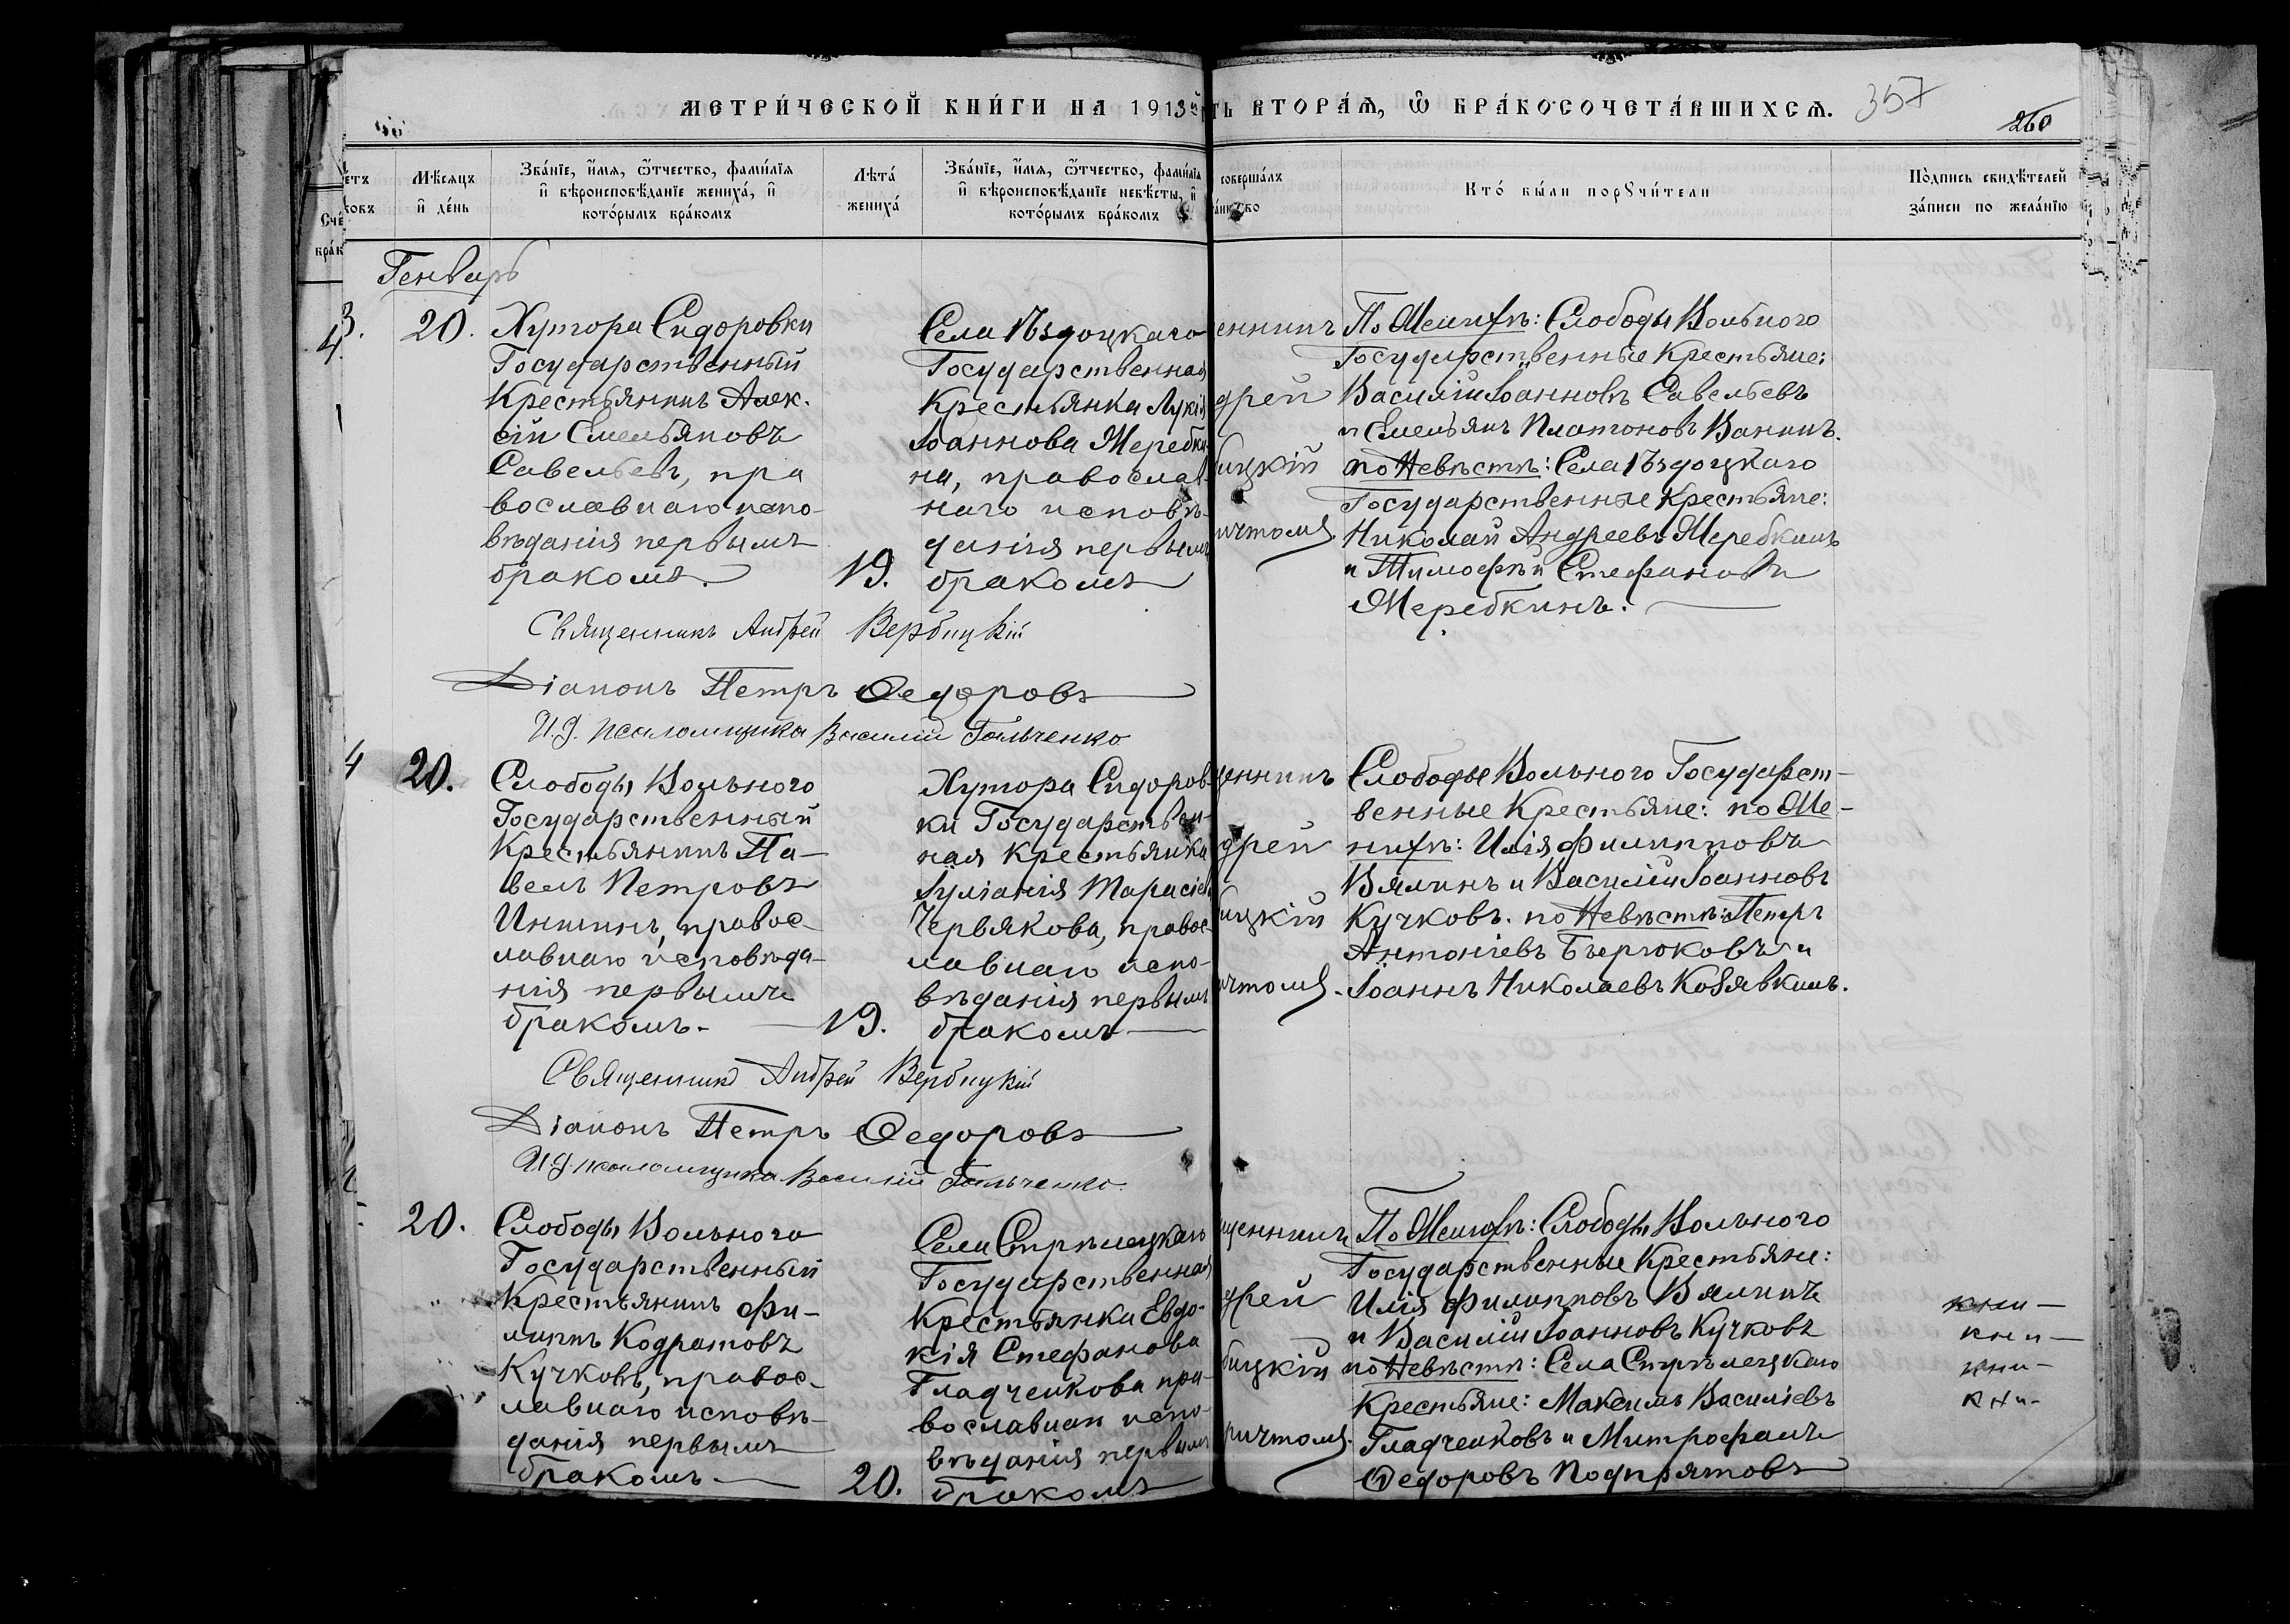 МЕТРИ́ЧЕСКОЙ КНИ́ГИ НА 1913й
ть ВТОРА́Ѧ, Ѿ БРА́КОСОЧЕТА́ВШИХСѦ.
357
260
Счё
бра́к
Мѣ́сяцъ и҆ де́нь
Зва́нїе, и҆́мя, ѻ҆́тчество, фами́лїя и҆ вѣроисповѣ́данїе жениха́, и҆ кото́рымъ бра́комъ
Лѣта́ жениха́
Зва́нїе, и҆́мя, ѻ҆́тчество, фами́лїя и҆ вѣроисповѣ́данїе невѣ́сты, и҆ кото́рымъ бра́комъ
соверша́лъ
Кто́ бы́ли порꙋчи́тели
По́дпись свидѣ́телей за́писи по жела́нїю
Генварь
3.
20.
Хутора Сидоровки
Государственный
Крестьянинъ Алек-
сій Емельяновъ
Савельевъ, пра
вославнаго испо-
вѣданія первымъ
бракомъ.
19.
Села Ѣздоцкаго
Государственная
Крестьянка Лукія
Іоаннова Жеребки-
на, православ-
наго исповѣ-
данія первымъ
бракомъ
енникъ
дрей
бицкій
ичтомъ
По Женихѣ: Слободы Вольного
Государственные Крестьяне:
Василій Іоанновъ Савельевъ
и Емельянъ Платоновъ Ванинъ.
по Невѣстѣ: Села Ѣздоцкаго
Государственные Крестьяне:
Николай Андреевъ Жеребкинъ
и Тимофѣй Стефановъ
Жеребкинъ.
Священникъ Андрей Вербицкій
Діаконъ Петръ Ѳедоровъ
И.д. псаломщика Василій Гальченко
4
20.
Слободы Вольного
Государственный
Крестьянинъ Па-
велъ Петровъ
правос-
лавнаго исповѣда-
нія первымъ
бракомъ.
19.
Хутора Сидоров-
ки Государствен-
ная Крестьянка
Іуліанія Тарасіев
Червякова, правос-
лавнаго испо-
вѣданія первымъ
бракомъ
щенникъ
дрей
ицкій
ичтомъ.
Слободы Вольного Государст-
венные Крестьяне: по Же-
нихѣ: Илія Филипповъ
Вялинъ и Василій Іоанновъ
Кучковъ. по Невѣстѣ: Петръ
Антоніевъ Бѣрюковъ и
Іоаннъ Николаевъ Козявкинъ.
Священникъ Андрей Вербицкій
Діаконъ Петръ Ѳедоровъ
И.д. псаломщика Василій Гальченко
20.
Слободы Вольного
Государственный
Крестьянинъ Фи-
липпъ Кодратовъ
Кучковъ, правос-
лавнаго исповѣ-
данія первымъ
бракомъ
20.
Села Стрѣлецкаго
Государственная
Крестьянка Евдо-
кія Стефанова
Гладченкова пра-
вославнаго испо-
вѣданія первымъ
бракомъ
щенникъ
дрей
бицкій
ричтомъ.
По Женихѣ: Слободы Вольного
Государственные Крестьяне:
Илія Филипповъ Вялинъ
и Василій Іоанновъ Кучковъ
по Невѣстѣ: Села Стрѣлецкаго
Крестьяне: Максимъ Василіевъ
Гладченковъ и Митрофанъ
Ѳедоровъ Подпрятовъ